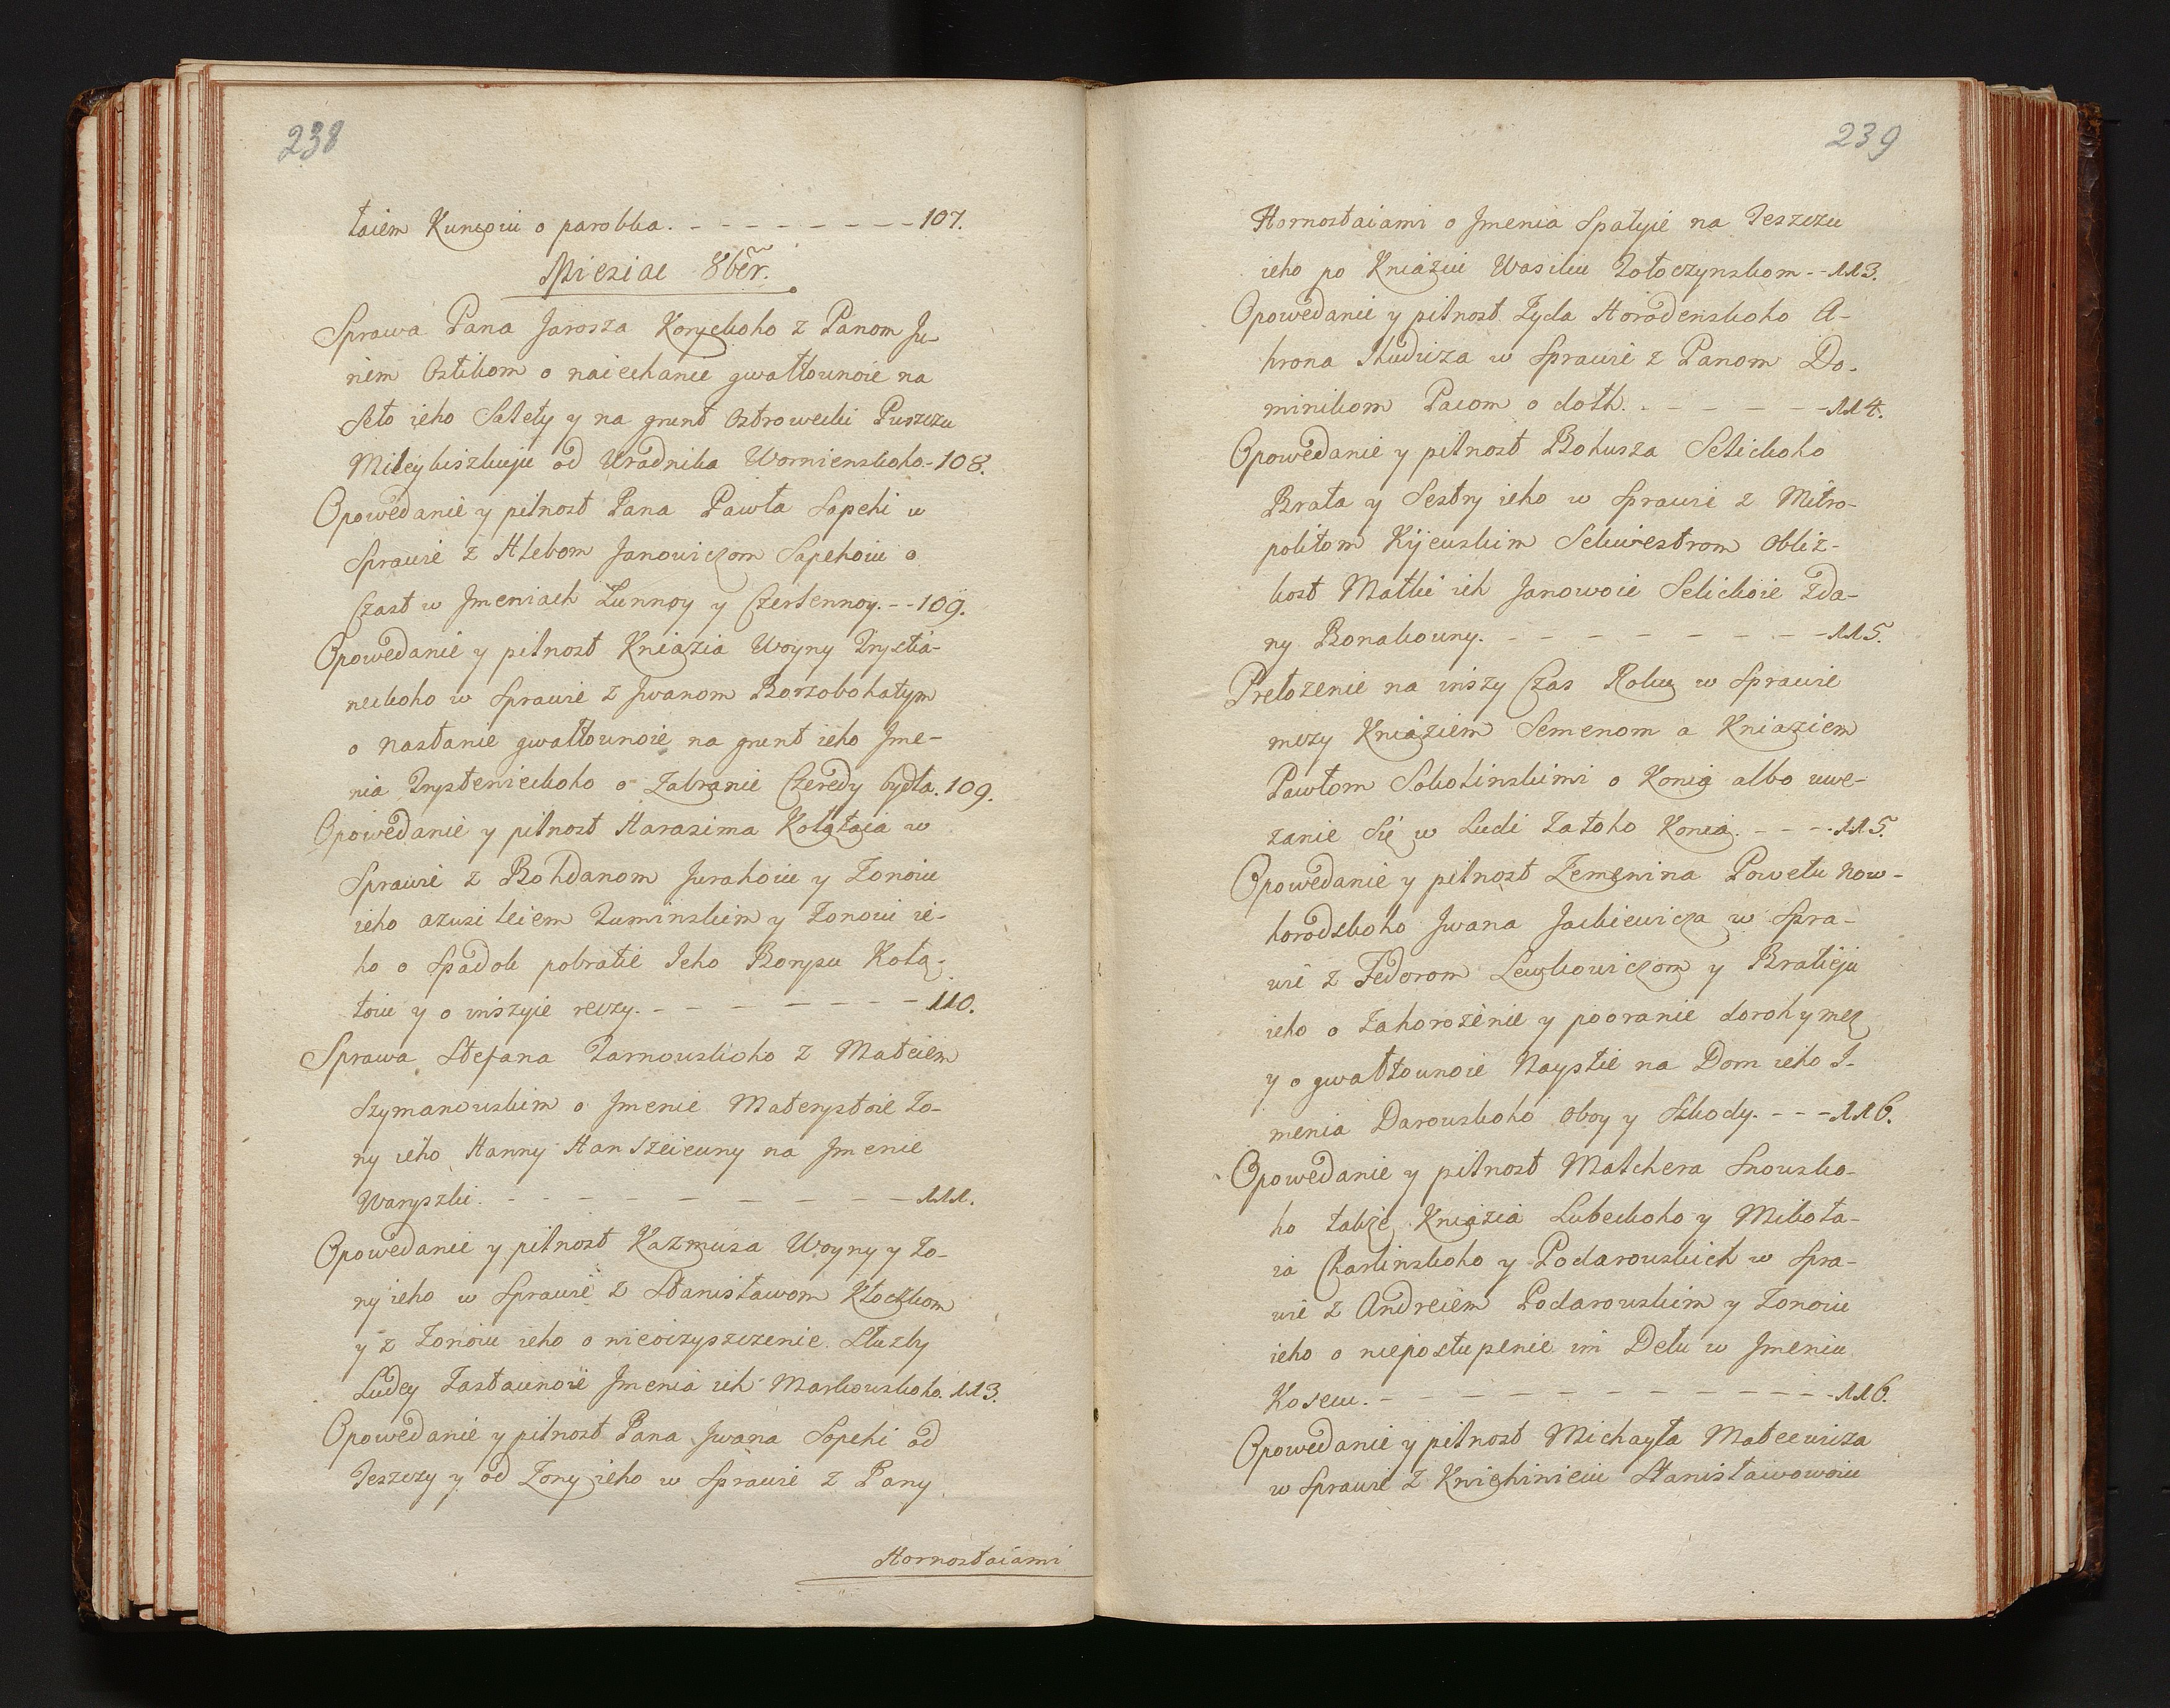 238
taiem Kuncowi o parobka. - - - - - - - - 107.
Miesiac 8ber.
Sprawa Pana Jarosza Koryckoho z Panom Ju-
riem Ostikom o naiechanie gwałtownoie na
Seło ieho Salety y na grunt Ostrowecki Puszczu
od Uradnika Wornienskoho.-108.
Opowedanie y pilnost Pana Pawła Sapehi w
Sprawie z Hlebom Janowiczom Sapehoiu o
Czast w Jmeniach Lunnoy y Czerlennoy. - - 109.
Opowedanie y pilnost Kniazia Woyny Trystia-
neckoho w Sprawie z Jwanom Borzobohatym
o nasłanie gwałtownoie na grunt ieho Jme-
nia Trystenieckoho o Zabranie Czeredy bydła. 109.
Opowedanie y pilnost Harasima Kołątaia w
Sprawie z Bohdanom Jurahoiu y Zonoiu
ieho Tuminskim y Zonoiu ie-
ho o Spadok pobratie Jeho Borysu Kołą-
toiu y o inszyie reczy. - - - - - - - 110.
Sprawa Stefana Tarnowskoho z Mateiem
Szymanowskim o Jmenie Materystoie Zo-
ny ieho Hanny Hanszeiewny na Jmenie
Waryszki. - - - - - - - - - 111.
Opowedanie y pilnost Kazmusa Woyny y Zo-
ny ieho w Sprawie z Stanisławom Kłoczkom
y z Zonoiu ieho o nieoczyszczenie Służby
Ludey Zastawnoie Jmenia ich Markowskoho. 113.
Opowedanie y pilnost Pana Jwana Sapehi od
Teszczy y od Zony ieho w Sprawie z Pany
Hornostaiami
239
Hornostaiami o Jmenia Spałyie na Teszczu
ieho po Kniaziu Wasiliu Tołoczynskom. - - 113.
Opowedanie y pilnost Zyda Horodenskoho A-
hrona w Sprawie z Panom Do-
minikom Pacom o dołh. - - - - - - 114.
Opowedanie y pilnost Bohusza Selickoho
Brata y Sestry ieho w Sprawie z Mitro-
politom Kijewskim Seliwestrom o bliz-
kost Matki ich Janowoie Selickoie Zda-
ny Bonakowny. - - - - - - - - 115.
Prełozenie na inszy Czas Roku w Sprawie
mezy Kniaziem Semenom a Kniaziem
Pawłom Sokolinskimi o Konia albo uwe-
zanie Sie w Ludi Zatoho Konia. - - - - 115.
Opowedanie y pilnost Zemenina Powetu Now-
horodskoho Jwana Jackiewicza w Spra-
wie z Fedorom Lewkowiczom y Bratieju
ieho o Zahorożenie y pooranie dorohy mez
y o gwałtownoie Nayście na Dom ieho J-
menia Darowskoho Oboy y Szkody. - - - 116.
Opowedanie y pilnost Malchera Snowsko-
ho także Kniazia Lubeckoho y Mikoła-
ia Charlinskoho y Podarowskich w Spra-
wie z Andreiem Podarowskim y Zonoiu
ieho o niepostupenie im Dełu w Jmeniu
Kosew. - - - - - - - - - - - 116.
Opowedanie y pilnost Michayła Mateewicza
w Sprawie z Kniehinieiu Stanisławowoiu